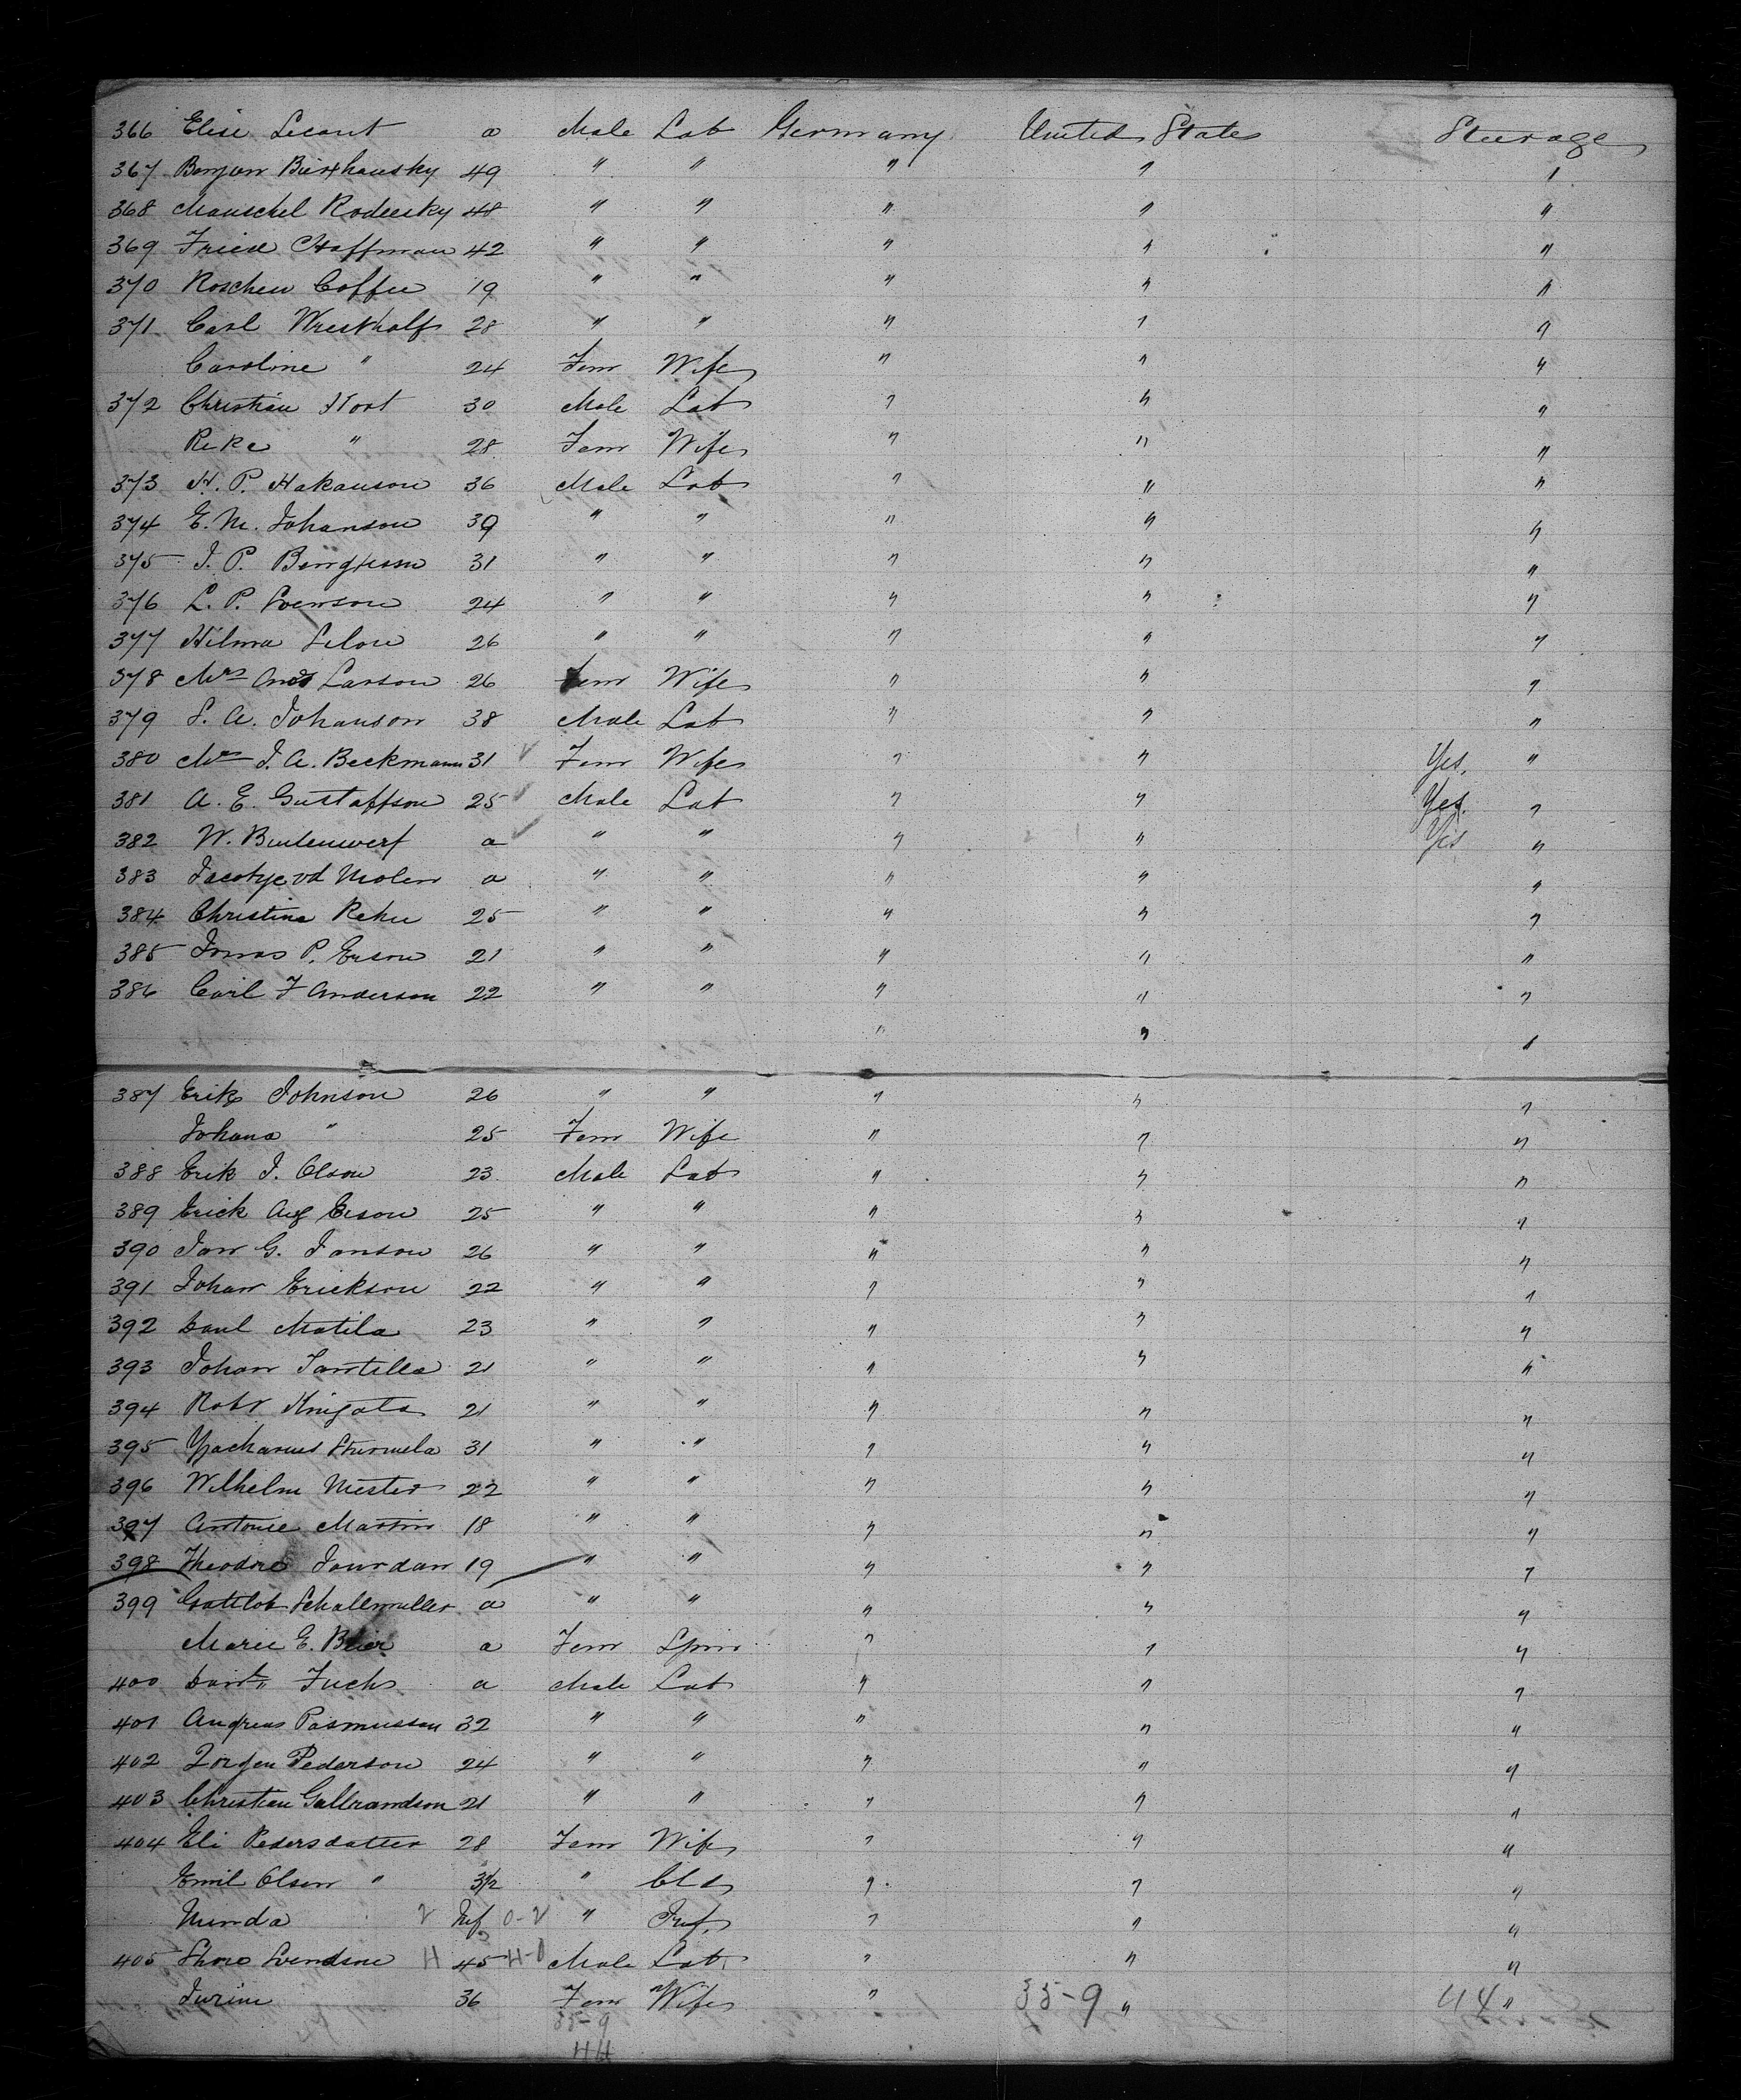 366 Elise Lecont a Male Lab Germany United States Steerage
367 Benjam 49 " " " " "
368 Mauschel Rodeesky 48 " " " " "
369 Hoffman 42 " " " " "
370 Roschen Coffee 19 " " " " "
371 Carl Westhalf 28 " " " " "
Caroline " 24 Fem Wife " " "
372 Christian 30 Male Lab " " "
Reke " 28 Fem Wife " " "
373 H. P. Hakanson 36 Male Lab " " "
374 E. M. Johanson 39 " " " " "
375 J. P. 31 " " " " "
376 L. P. Svenson 24 " " " " "
377 Hilma Selon 26 " " " " "
378 Mrs And Larson 26 Fem Wife " " "
379 S. A. Johanson 38 Male Lab " " "
380 Mrs J. A. Beckmann 31 Fem Wife " " Yes. "
381 A. E. Gustaffson 25 Male Lab " " Yes. "
382 W. Buitenwerf a " " " " Yes "
383 vd Molen a " " " " "
384 Christine Rehn 25 " " " " "
385 Jonas P. Erson 21 " " " " "
386 Carl F Anderson 22 " " " " "
" " "
387 Erik Johnson 26 " " " " "
Johana " 25 Fem Wife " " "
388 Erik J. Olson 23 Male Lab " " "
389 Erick Aug Erson 25 " " " " "
390 Jan G. Janson 26 " " " " "
391 Johan Erickson 22 " " " " "
392 Matila 23 " " " " "
393 Johan Tantilla 21 " " " " "
394 Robt 21 " " " " "
395 31 " " " " "
396 Wilhelm Mester 22 " " " " "
397 Antonie Martin 18 " " " " "
398 Theodore Jourdan 19 " " " " "
399 Gottlob Schallmuller a " " " " "
Marie E. Beier a Fem Spin " " "
400 Fuchs a Male Lab " " "
401 Andreas Rasmussen 32 " " " " "
402 Jorgen Pederson 24 " " " " "
403 Christian Gulbrandson 21 " " " " "
404 Eli Pedersdatter 28 Fem Wife " " "
Emil Olsen " 3/12 " Cld " " "
Minda 2 Inf 0-2 " Inf. " " "
405 Svendsen H 45 H-0 Male Lab. " " "
36 Fem Wife " 35-9 " 44 "
35-9
44